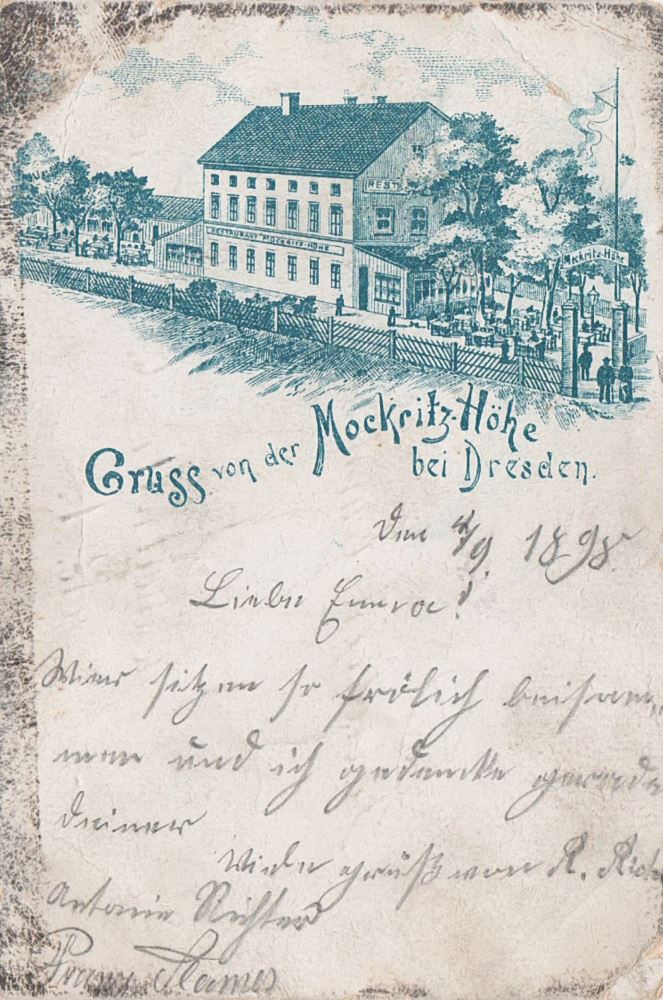 REST
RESTAURANT MOCKRITZ-HÖHE
Mockritz-Höhe
Gruss von der Mockritz-Höhe
bei Dresden.
Den 4/9. 1898.
Liebe Emma!
Wir sitzen so frölich beisam-
men und ich gedenke gerade
deiner
Viele grüß von R. Rich
Antonie Richter